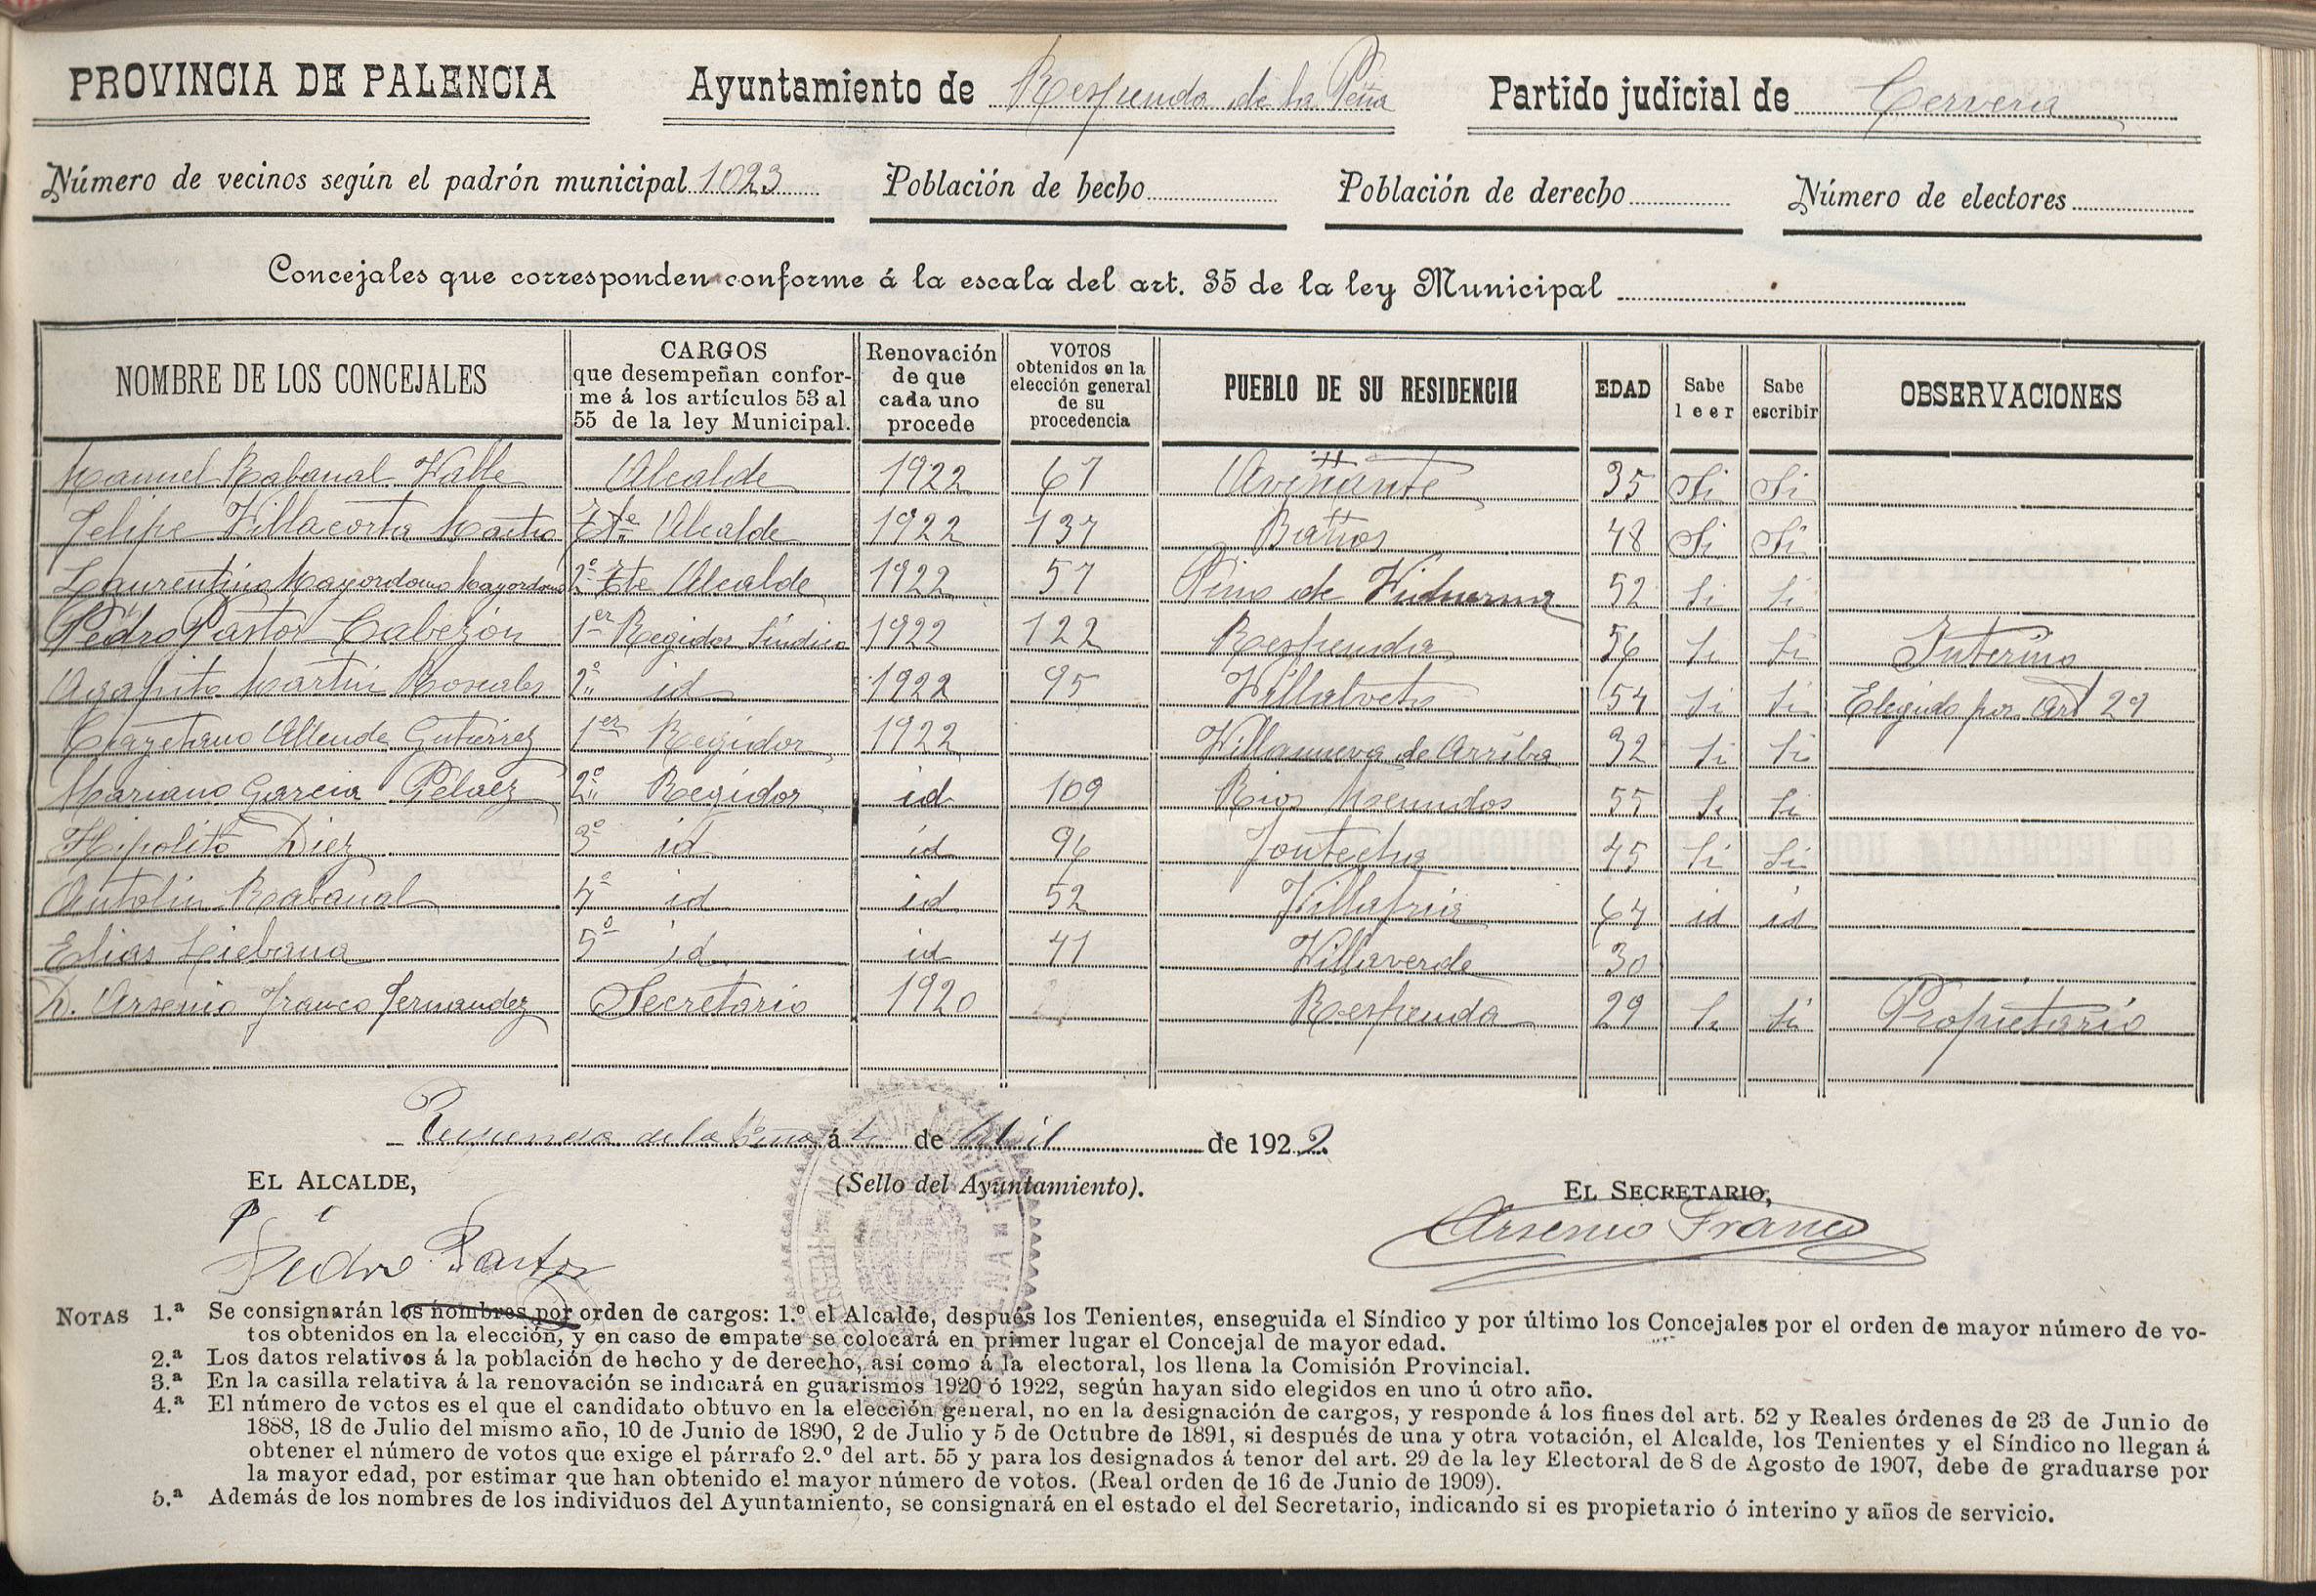 PROVINCIA DE PALENCIA Ayuntamiento de Respenda de la Peña Partido judicial de Cervera
Número de vecinos según el padrón municipal 1023 Población de hecho Población de derecho Número de electores
Concejales que corresponden conforme á la escala del art. 35 de la ley Municipal
NOMBRE DE LOS CONCEJALES CARGOS que desempeñan conforme á los artículos 53 al 55 de la ley Municipal. Renovación de que cada uno procede VOTOS obtenidos en la elección general de su procedencia PUEBLO DE SU RESIDENCIA EDAD Sabe leer Sabe escribir OBSERVACIONES
Manuel Rabanal Valle Alcalde 1922 67 Aviñante 35 Si Si
Felipe Villacorta Martin 1er Tte Alcalde 1922 137 Baños 48 Si Si
Laurentino Mayordomo Mayordomo 2º Tte Alcalde 1922 57 Pino de Viduerna 52 Si Si
Pedro Pastor Cabezón 1er Regidor Síndico 1922 122 Respenda 56 Si Si Interino
Agapito Martin 2º id 1922 95 54 Si Si Elegido por Art 29
Cayetano Allende Gutierrez 1er Regidor 1922 Villanueva de Arriba 32 Si Si
Mariano Garcia Pelaez 2º Regidor id 109 Rios Menudos 55 Si Si
Hipolito Diez 3º id id 96 Fontecha 45 Si Si
Antolin Rabanal 4º id id 52 Villafria 64 id id
Elias Liebana 5º id id 41 Villaverde 30
D. Arsenio Franco Fernandez Secretario 1920 Respenda 29 Si Si Propietario
Respenda de la Peña á de Abril de 1922
EL ALCALDE, (Sello del Ayuntamiento). EL SECRETARIO,
Pedro Pastor Arsenio Franco
NOTAS 1.ª Se consignarán los nombres por orden de cargos: 1.º el Alcalde, después los Tenientes, enseguida el Síndico y por último los Concejales por el orden de mayor número de vo-
tos obtenidos en la elección, y en caso de empate se colocará en primer lugar el Concejal de mayor edad.
2.ª Los datos relativos á la población de hecho y de derecho, así como á la electoral, los llena la Comisión Provincial.
3.ª En la casilla relativa á la renovación se indicará en guarismos 1920 ó 1922, según hayan sido elegidos en uno ú otro año.
4.ª El número de votos es el que el candidato obtuvo en la elección general, no en la designación de cargos, y responde á los fines del art. 52 y Reales órdenes de 23 de Junio de
1888, 18 de Julio del mismo año, 10 de Junio de 1890, 2 de Julio y 5 de Octubre de 1891, si después de una y otra votación, el Alcalde, los Tenientes y el Síndico no llegan á
obtener el número de votos que exige el párrafo 2.º del art. 55 y para los designados á tenor del art. 29 de la ley Electoral de 8 de Agosto de 1907, debe de graduarse por
la mayor edad, por estimar que han obtenido el mayor número de votos. (Real orden de 16 de Junio de 1909).
5.ª Además de los nombres de los individuos del Ayuntamiento, se consignará en el estado el del Secretario, indicando si es propietario ó interino y años de servicio.